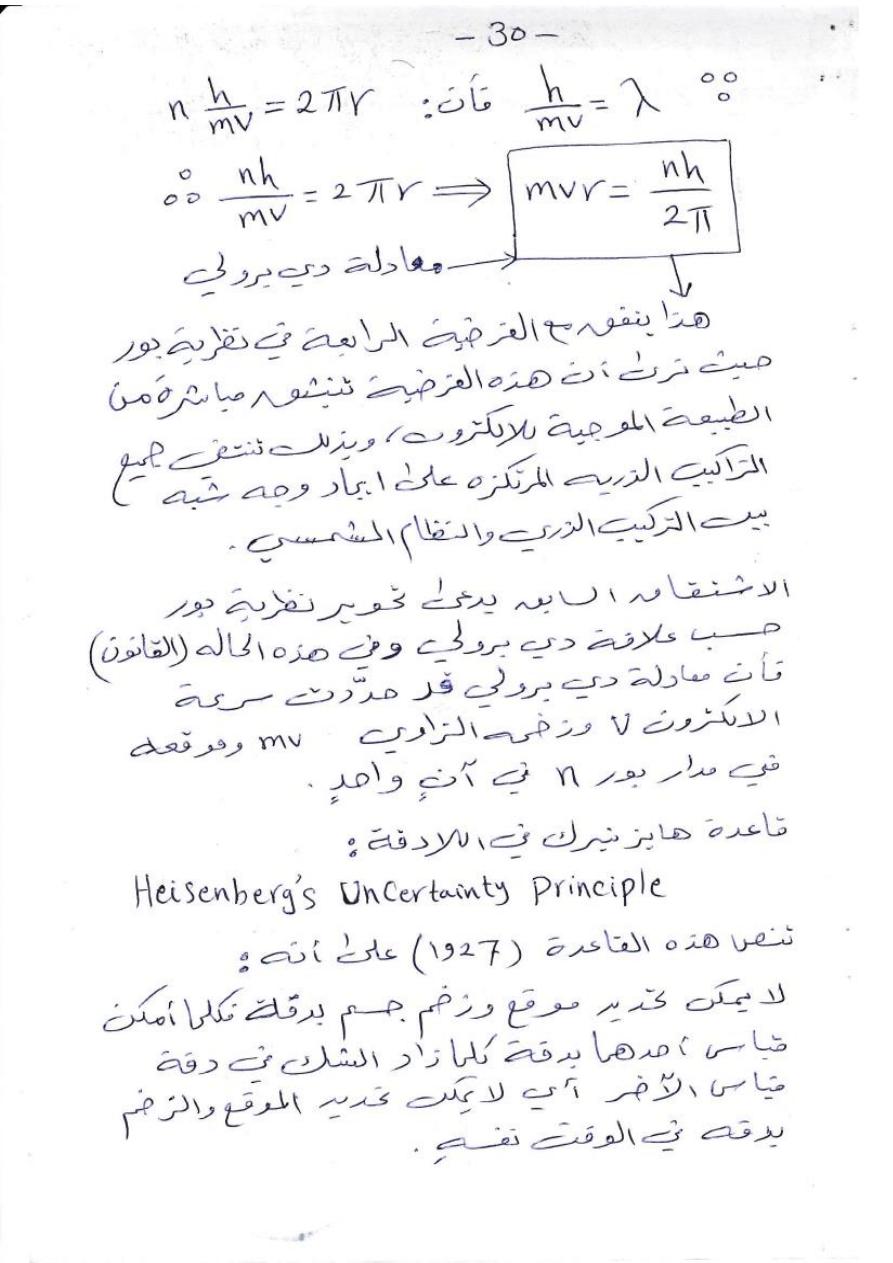 - 30 -
∵ h/mv = λ فأن: n h/mv = 2πr
∴ nh/mv = 2πr ⟹ mvr = nh/2π
معادلة دي برولي
هذا يتفق مع الفرضية الرابعة في نظرية بور
حيث نرى أن هذه الفرضية تنبثق مباشرة من
الطبيعة الموجية للالكترون، وبذلك تنتفي جميع
التراكيب الذريه المرتكزه على ايجاد وجه شبه
بين التركيب الذري والنظام الشمسي.
الاشتقاق السابق يدعى تحوير نظرية بور
حسب علاقة دي برولي وفي هذه الحاله (القانون)
فأن معادلة دي برولي قد حدّدت سرعة
الالكترون v وزخمه الزاوي mv وموقعه
في مدار بور n في آنٍ واحدٍ.
قاعدة هايزنبرك في اللادقة:
Heisenberg's Uncertainty Principle
تنص هذه القاعدة (1927) على أنه:
لا يمكن تحديد موقع وزخم جسم بدقة فكلما أمكن
قياس أحدهما بدقة كلما زاد الشك في دقة
قياس الآخر أي لا يمكن تحديد الموقع والزخم
بدقه في الوقت نفسهِ.